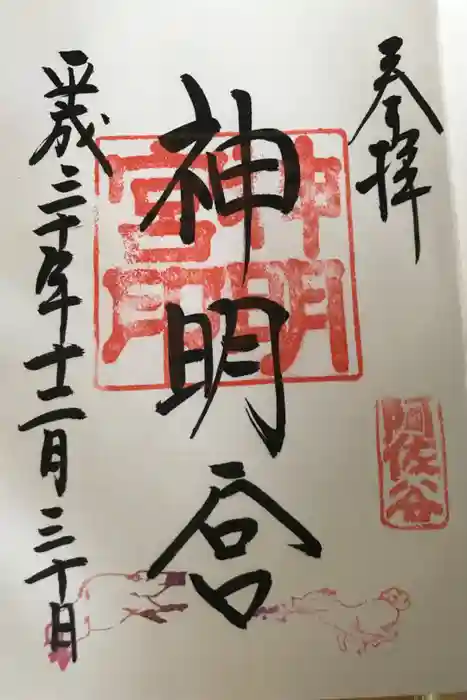 奉拝
阿佐谷
神明宮
神明
宮印
平成三十年十二月三十日